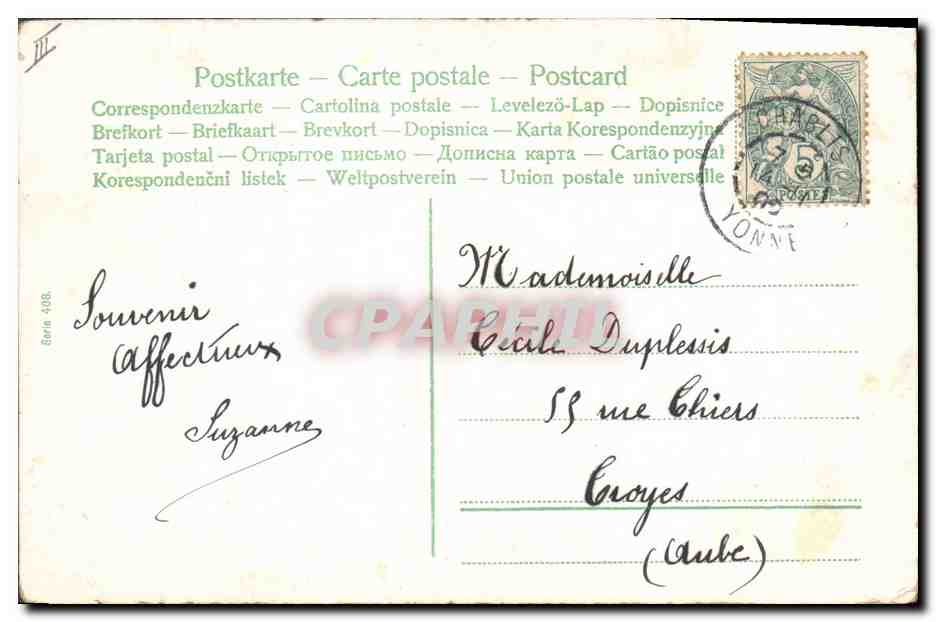 III
Postkarte — Carte postale — Postcard
Correspondenzkarte — Cartolina postale — Levelező-Lap — Dopisnice
Brefkort — Briefkaart — Brevkort — Dopisnica — Karta Korespondenzyjna
Tarjeta postal — Открытое письмо — Дописна карта — Cartão postal
Korespondenční listek — Weltpostverein — Union postale universelle
CHABLIS
5
POSTES
YONNE
Serie 408.
Souvenir
Affectueux
Suzanne
Mademoiselle
Cécile Duplessis
55 rue Thiers
Troyes
(Aube)
CPAPHIL